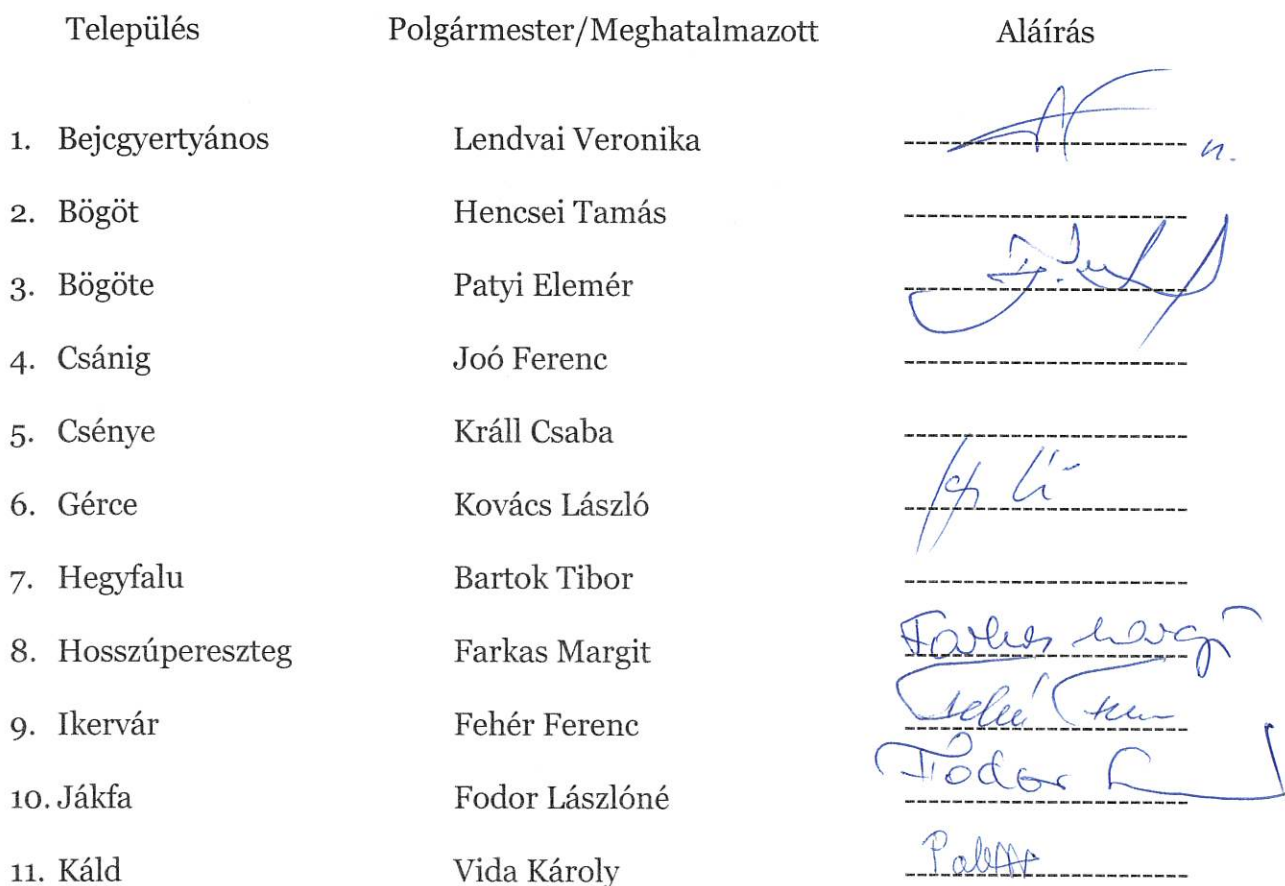 Település Polgármester/Meghatalmazott Aláírás
1. Bejcgyertyános Lendvai Veronika
2. Bögöt Hencsei Tamás
3. Bögöte Patyi Elemér
4. Csánig Joó Ferenc
5. Csénye Králl Csaba
6. Gérce Kovács László
7. Hegyfalu Bartok Tibor
8. Hosszúpereszteg Farkas Margit Farkas Margi
9. Ikervár Fehér Ferenc Fehér
10. Jákfa Fodor Lászlóné Fodor
11. Káld Vida Károly